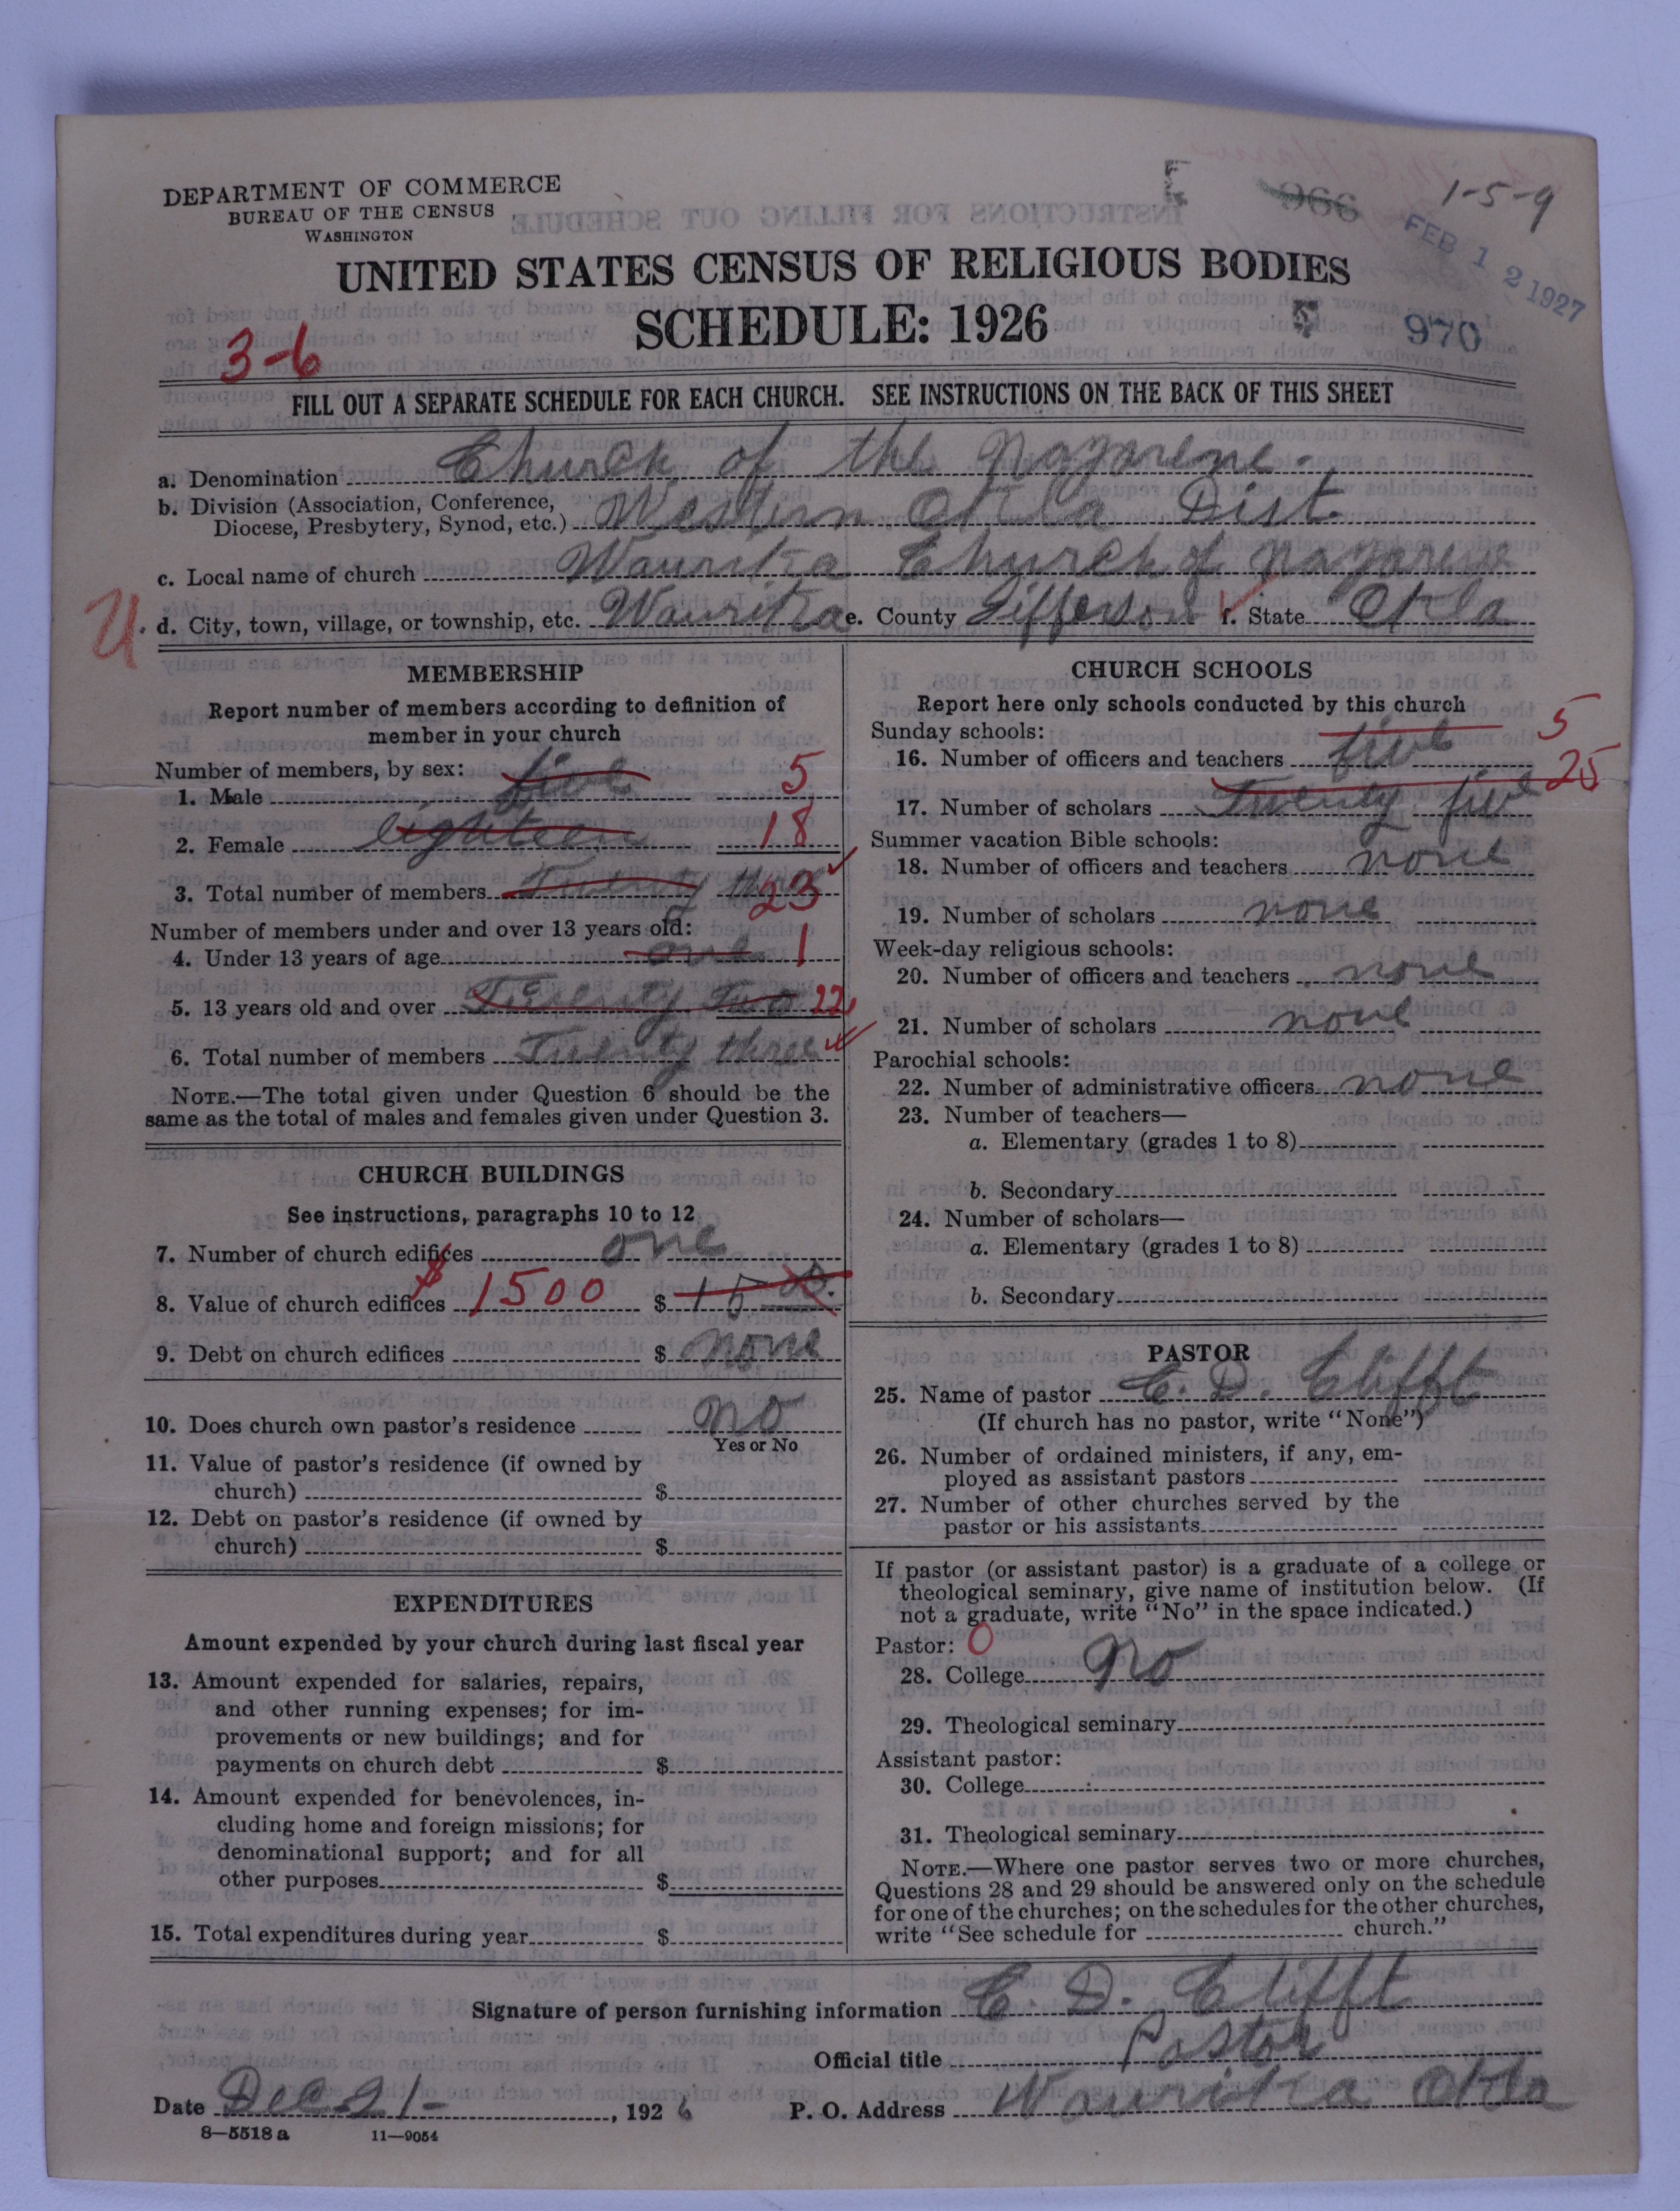 DEPARTMENT OF COMMERCE
BUREAU OF THE CENSUS
WASHINGTON
966
1-5-9
FEB 12 1927
UNITED STATES CENSUS OF RELIGIOUS BODIES
SCHEDULE: 1926
970
3-6
FILL OUT A SEPARATE SCHEDULE FOR EACH CHURCH. SEE INSTRUCTIONS ON THE BACK OF THIS SHEET
a. Denomination Church of the Nazarene.
b. Division (Association, Conference,
Diocese, Presbytery, Synod, etc.) Western Okla Dist.
c. Local name of church Waurika Church of Nazarene
U. d. City, town, village, or township, etc. Waurika e. County Jifferson f. State Okla
MEMBERSHIP
Report number of members according to definition of
member in your church
Number of members, by sex:
1. Male five 5
2. Female eighteen 18
3. Total number of members Twenty three 23
Number of members under and over 13 years old:
4. Under 13 years of age one 1
5. 13 years old and over Twenty Two 22
6. Total number of members Twenty three
NOTE.—The total given under Question 6 should be the
same as the total of males and females given under Question 3.
CHURCH BUILDINGS
See instructions, paragraphs 10 to 12
7. Number of church edifices one
8. Value of church edifices $1500 $ 15 00.
9. Debt on church edifices $ none
10. Does church own pastor's residence no
Yes or No
11. Value of pastor's residence (if owned by
church) $
12. Debt on pastor's residence (if owned by
church) $
EXPENDITURES
Amount expended by your church during last fiscal year
13. Amount expended for salaries, repairs,
and other running expenses; for im-
provements or new buildings; and for
payments on church debt $
14. Amount expended for benevolences, in-
cluding home and foreign missions; for
denominational support; and for all
other purposes $
15. Total expenditures during year $
CHURCH SCHOOLS
Report here only schools conducted by this church
Sunday schools:
16. Number of officers and teachers five 5
17. Number of scholars Twenty five 25
Summer vacation Bible schools:
18. Number of officers and teachers none
19. Number of scholars none
Week-day religious schools:
20. Number of officers and teachers none
21. Number of scholars none
Parochial schools:
22. Number of administrative officers none
23. Number of teachers—
a. Elementary (grades 1 to 8)
b. Secondary
24. Number of scholars—
a. Elementary (grades 1 to 8)
b. Secondary
PASTOR
25. Name of pastor C. D. Clifft
(If church has no pastor, write "None")
26. Number of ordained ministers, if any, em-
ployed as assistant pastors
27. Number of other churches served by the
pastor or his assistants
If pastor (or assistant pastor) is a graduate of a college or
theological seminary, give name of institution below. (If
not a graduate, write "No" in the space indicated.)
Pastor: 0
28. College no
29. Theological seminary
Assistant pastor:
30. College
31. Theological seminary
NOTE.—Where one pastor serves two or more churches,
Questions 28 and 29 should be answered only on the schedule
for one of the churches; on the schedules for the other churches,
write "See schedule for church."
Signature of person furnishing information C. D. Clifft
Official title Pastor
Date Dec 21-, 1926 P. O. Address Waurika Okla
8—5518 a 11—9054